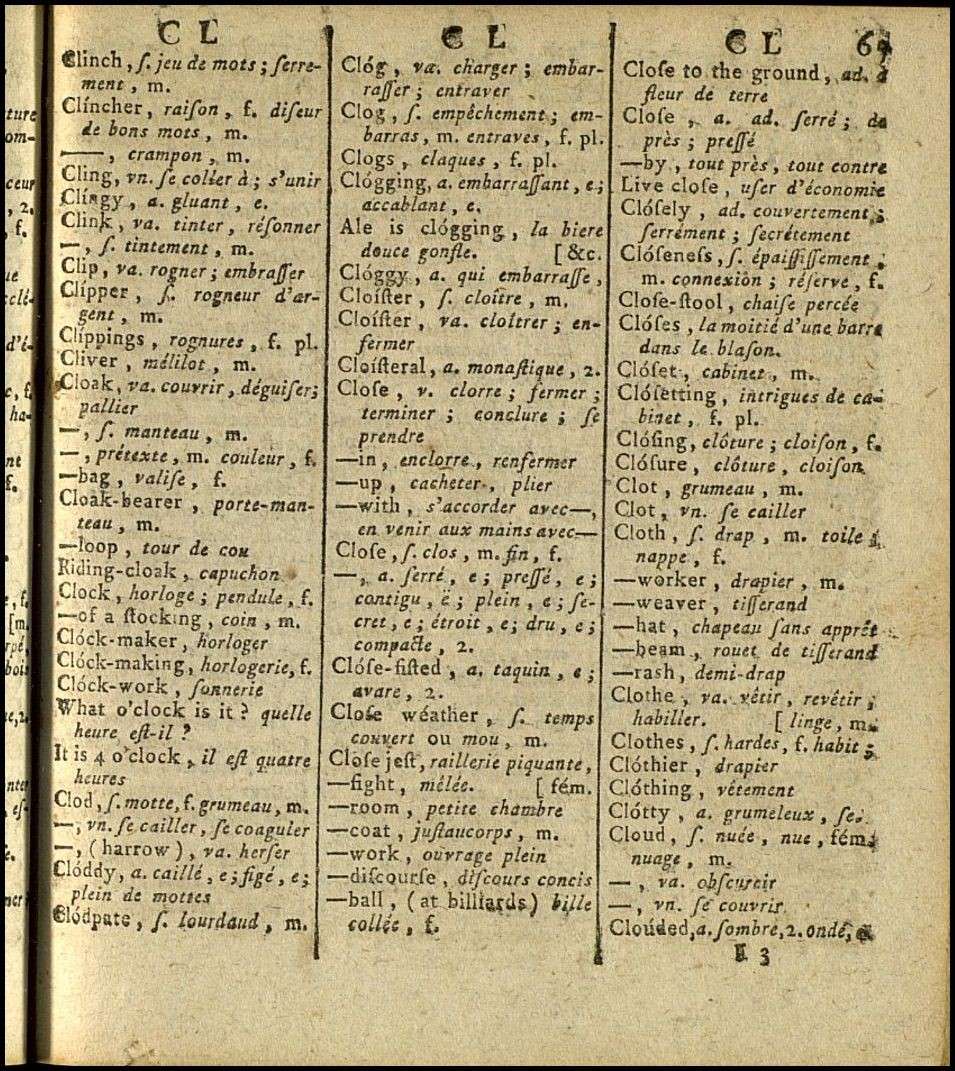 C L
Clinch, ſ. jeu de mots; ſerre-
ment, m.
Clíncher, raiſon, f. diſeur
de bons mots, m.
——, crampon, m.
Cling, vn. ſe coller à; s'unir
Clíngy, a. gluant, e.
Clink, va. tinter, réſonner
—, ſ. tintement, m.
Clip, va. rogner; embraſſer
Clípper, ſ. rogneur d'ar-
gent, m.
Clíppings, rognures, f. pl.
Cliver, mélilot, m.
Cloak, va. couvrir, déguiſer;
pallier
—, ſ. manteau, m.
—, prétexte, m. couleur, f.
—bag, valiſe, f.
Cloak-bearer, porte-man-
teau, m.
—loop, tour de cou
Riding-cloak, capuchon
Clock, horloge; pendule, f.
—of a ſtocking, coin, m.
Clóck-maker, horloger
Clóck-making, horlogerie, f.
Clóck-work, ſonnerie
What o'clock is it? quelle
heure eſt-il?
It is 4 o'clock, il eſt quatre
heures
Clod, ſ. motte, f. grumeau, m.
—, vn. ſe cailler, ſe coaguler
—, (harrow), va. herſer
Clóddy, a. caillé, e; figé, e;
plein de mottes
Clódpate, ſ. lourdaud, m.
C L
Clóg, va. charger; embar-
raſſer; entraver
Clog, ſ. empêchement; em-
barras, m. entraves, f. pl.
Clogs, claques, f. pl.
Clógging, a. embarraſſant, e;
accablant, e.
Ale is clógging, la biere
douce gonfle. [&c.
Clóggy, a. qui embarraſſe,
Cloíſter, ſ. cloître, m.
Cloíſter, va. cloîtrer; en-
fermer
Cloíſteral, a. monaſtique, 2.
Cloſe, v. clorre; fermer;
terminer; conclure; ſe
prendre
—in, enclorre, renfermer
—up, cacheter, plier
—with, s'accorder avec—,
en venir aux mains avec—
Cloſe, ſ. clos, m. fin, f.
—, a. ſerré, e; preſſé, e;
contigu, ë; plein, e; ſe-
cret, e; étroit, e; dru, e;
compacte, 2.
Clóſe-fiſted, a. taquin, e;
avare, 2.
Cloſe wéather, ſ. temps
couvert ou mou, m.
Cloſe jeſt, raillerie piquante,
—fight, mêlée. [fém.
—room, petite chambre
—coat, juſtaucorps, m.
—work, ouvrage plein
—diſcourſe, diſcours concis
—ball, (at billiards) bille
collée, f.
C L
Cloſe to the ground, ad. à
fleur de terre
Cloſe, a. ad. ſerré; de
près; preſſé
—by, tout près, tout contre
Live cloſe, uſer d'économie
Clóſely, ad. couvertement;
ſerrément; ſecrétement
Clóſeneſs, ſ. épaiſſiſſement;
m. connexiôn; réſerve, f.
Cloſe-ſtool, chaiſe percée
Clóſes, la moitié d'une barre
dans le blaſon.
Clóſet, cabinet, m.
Clóſetting, intrigues de ca-
binet, f. pl.
Clóſing, clôture; cloiſon, f.
Clóſure, clôture, cloiſon
Clot, grumeau, m.
Clot, vn. ſe cailler
Cloth, ſ. drap, m. toile;
nappe, f.
—worker, drapier, m.
—weaver, tiſſerand
—hat, chapeau ſans apprêt
—beam, rouet de tiſſerand
—rash, demi-drap
Clothe, va. vêtir, revêtir;
habiller. [linge, m.
Clothes, ſ. hardes, f. habit;
Clóthier, drapier
Clóthing, vêtement
Clótty, a. grumeleux, ſe.
Cloud, ſ. nuée, nue, fém.
nuage, m.
—, va. obſcurcir
—, vn. ſe couvrir
Cloúded, a. ſombre, 2. ondé,
3